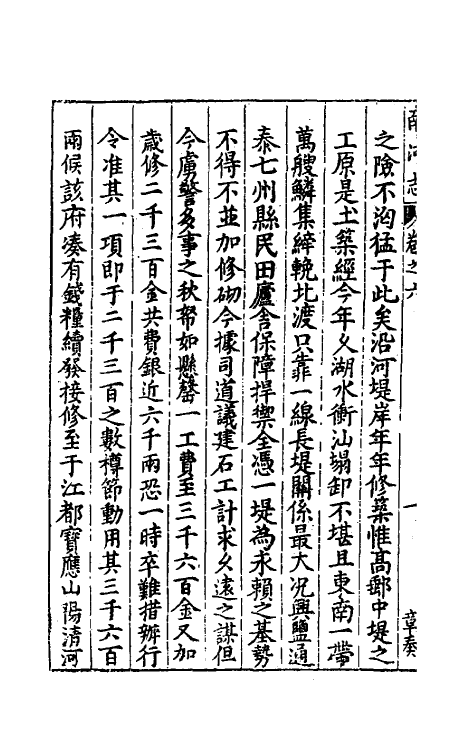 南河志 卷之六 一 章奏
之險不洶猛于此矣沿河堤岸年年修築惟高郵中堤之
工原是土築經今年久湖水衝汕塌卸不堪且東南一帶
萬艘鱗集縴輓北渡只靠一線長堤關係最大况興鹽通
泰七州縣民田廬舍保障捍禦全憑一堤為永賴之基勢
不得不並加修砌今據司道議建石工計求久遠之謀但
今虜警多事之秋帑如懸罄一工費至三千六百金又加
歲修二千三百金共費銀近六千兩恐一時卒難措辦行
令准其一項即于二千三百之數樽節動用其三千六百
兩候該府凑有錢糧續發接修至于江都寶應山陽清河